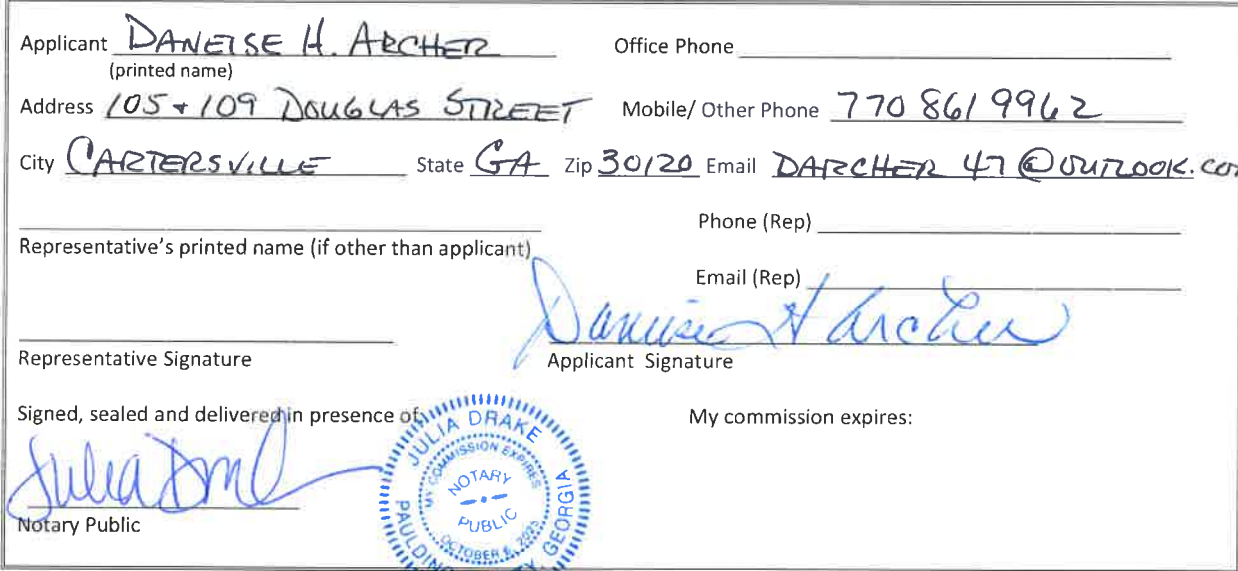 Applicant DANEISE H. ARCHER Office Phone
(printed name)
Address 105 + 109 DOUGLAS STREET Mobile/ Other Phone 770 861 9962
City CARTERSVILLE State GA Zip 30120 Email DARCHER 47 @OUTLOOK.COM
Phone (Rep)
Representative's printed name (if other than applicant)
Email (Rep)
Daneise H Archer
Representative Signature Applicant Signature
Signed, sealed and delivered in presence of My commission expires:
Julia
Notary Public
JULIA DRAKE
MY COMMISSION EXPIRES
NOTARY
PUBLIC
OCTOBER
PAULDING GEORGIA